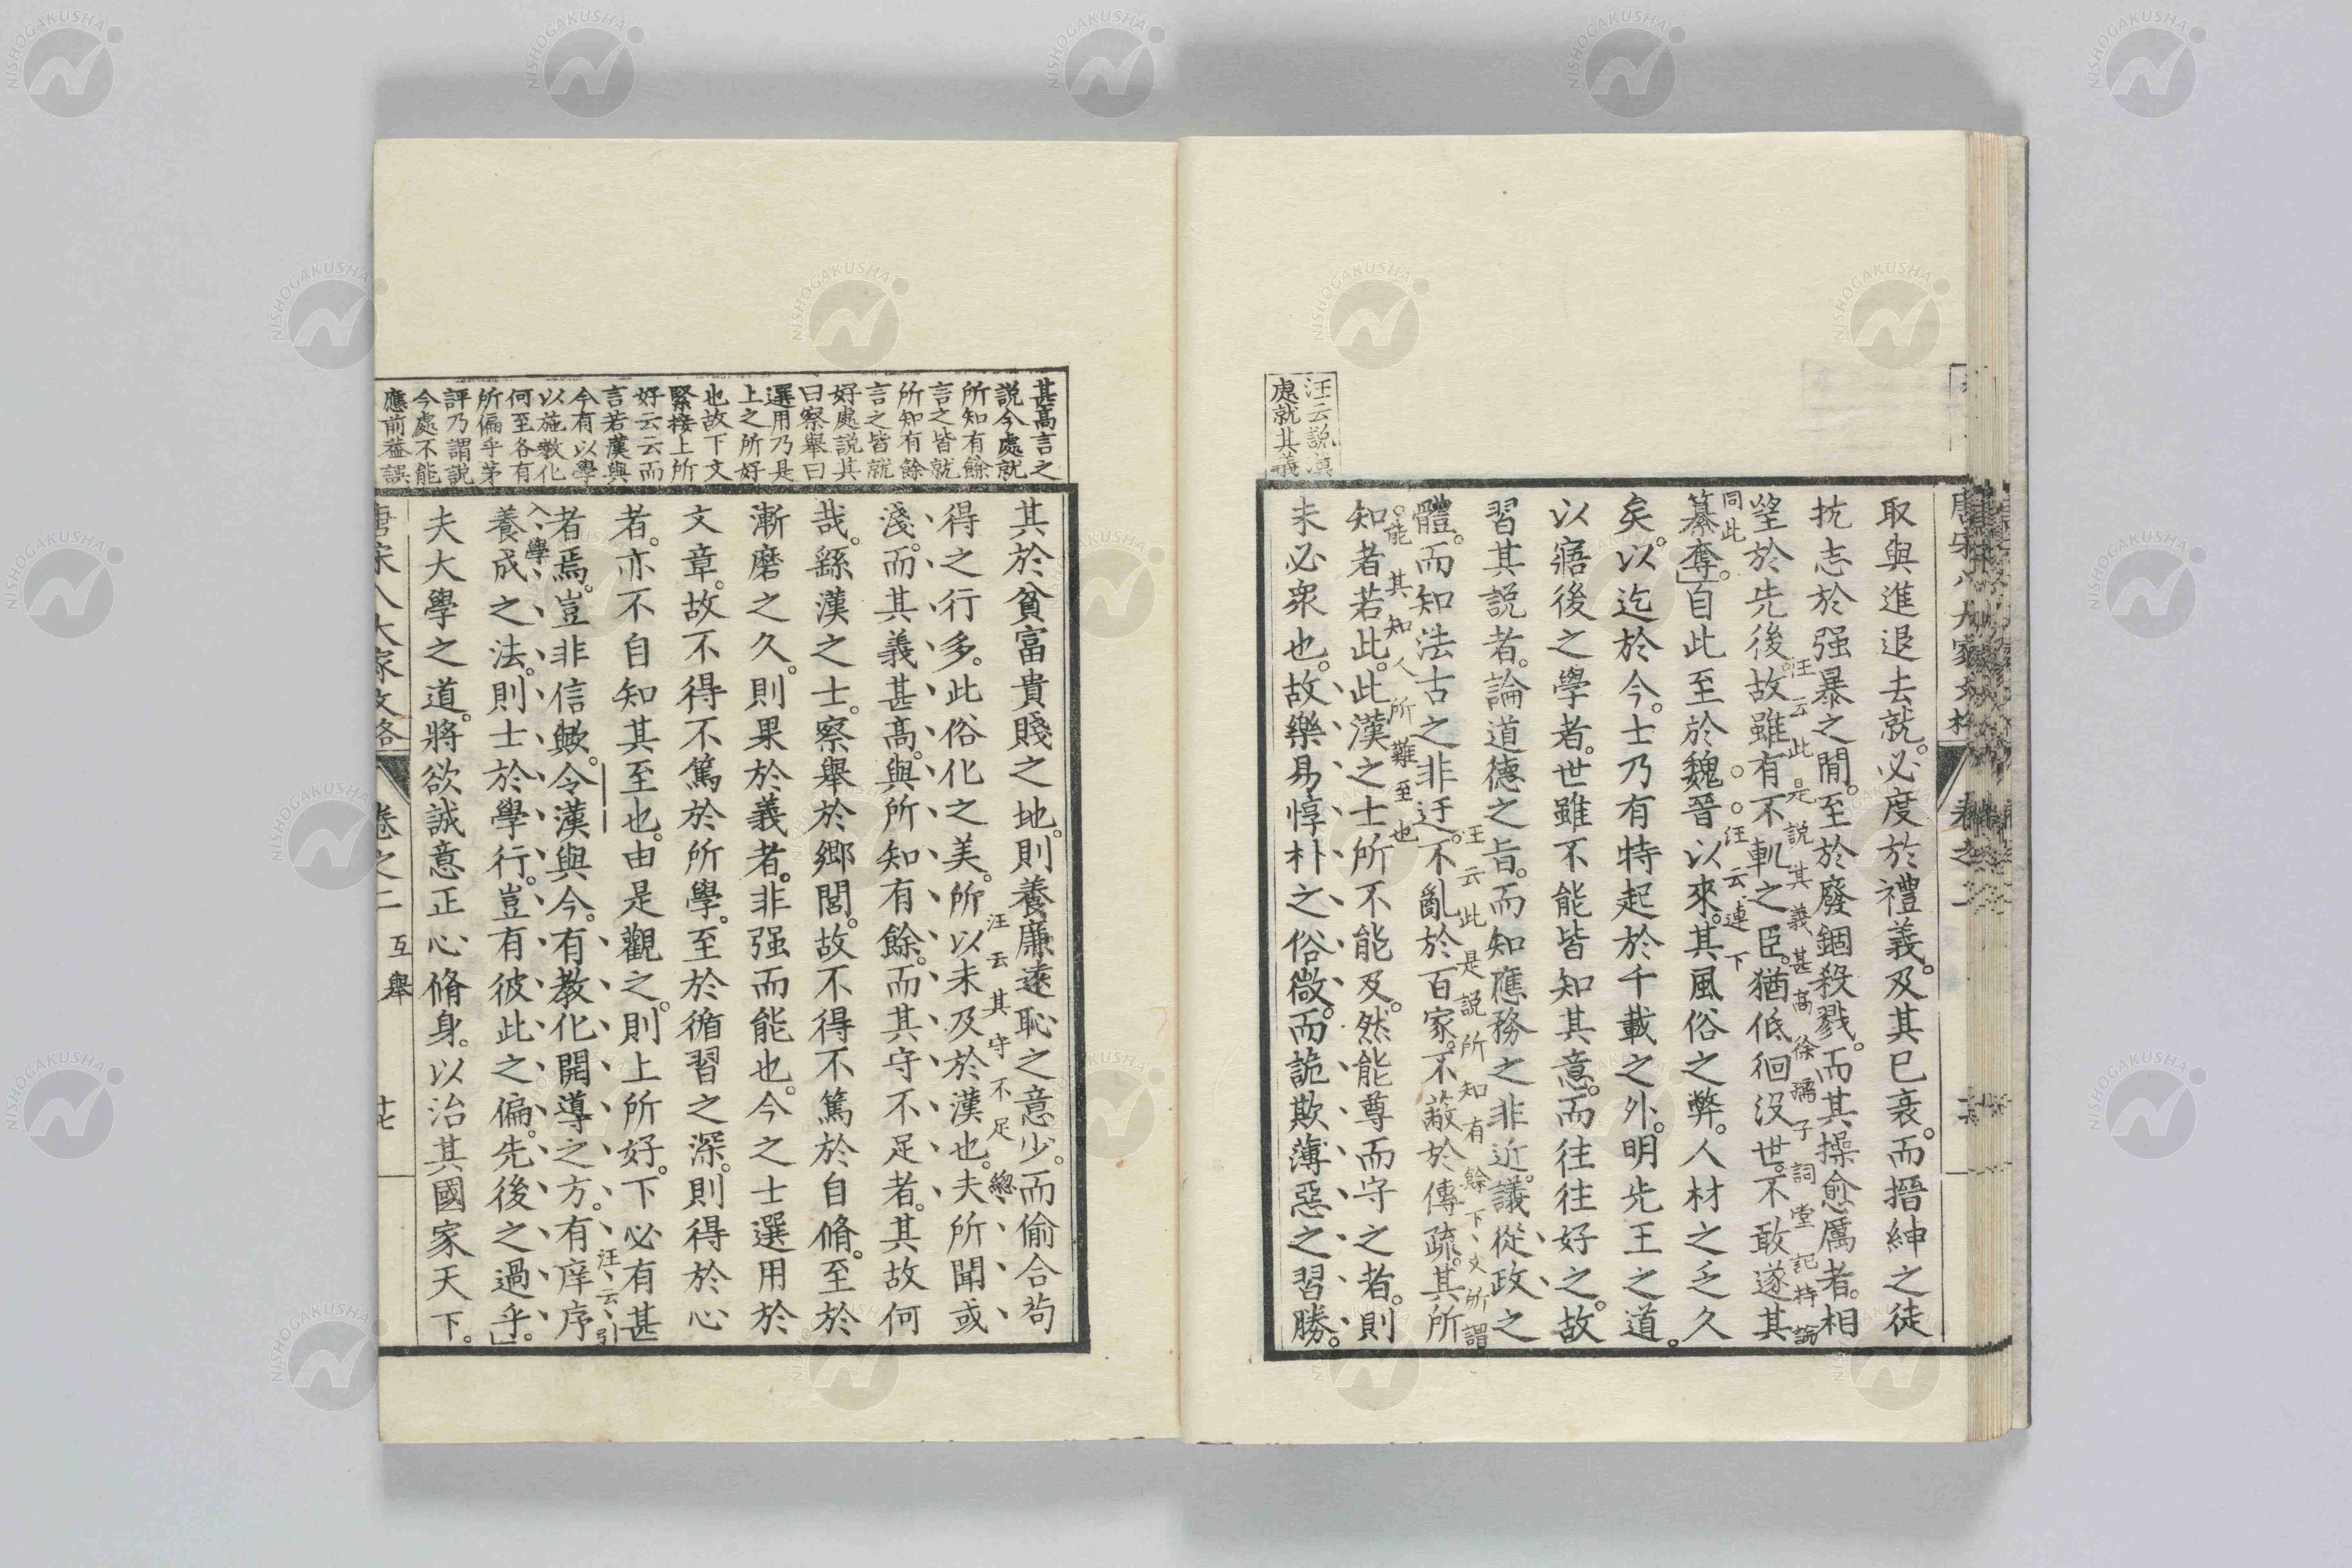 取與進退去就。必度於禮義。及其已衰。而搢紳之徒
抗志於强暴之間。至於廢錮殺戮。而其操愈厲者。相
望於先後。故雖有不軌之臣。猶低徊沒世。不敢遂其
汪云此是說其義甚高徐孺子祠堂記持論
同此
簒奪。」自此至於魏晉以來。其風俗之弊。人材之乏久
汪云連下
矣。以迄於今。士乃有特起於千載之外。明先王之道。
以寤後之學者。世雖不能皆知其意。而往往好之。故
習其說者。論道德之旨。而知應務之非近。議從政之
體。而知法古之非迂。不亂於百家。不蔽於傳疏。其所
汪云此是說所知有餘下文所謂
能其知人所難至也
知者若此。此漢之士所不能及。然能尊而守之者。則
未必衆也。故樂易惇朴之俗微。而詭欺薄惡之習勝。
汪云說漢
處就其義
唐宋八大家文格
卷之二
其於貧富貴賤之地。則養廉遠恥之意少。而偷合苟
得之行多。此俗化之美。所以未及於漢也。夫所聞或
汪云其守不足
總
淺。而其義甚高。與所知有餘。而其守不足者。其故何
哉。繇漢之士。察舉於鄉閭。故不得不篤於自脩。至於
漸磨之久。則果於義者。非强而能也。今之士選用於
文章。故不得不篤於所學。至於循習之深。則得於心
者。亦不自知其至也。由是觀之。則上所好。下必有甚
者焉。豈非信歟。令漢與今。有教化開導之方。有庠序
汪云引
入學
養成之法。則士於學行。豈有彼此之偏。先後之過乎。」
夫大學之道。將欲誠意正心脩身。以治其國家天下。
甚高言之
說今處就
所知有餘
言之皆就
所知有餘
言之皆就
好處說其
曰察舉曰
選用乃是
上之所好
也故下文
緊接上所
好云云而
言若漢與
今有以學
以施教化
何至各有
所偏乎茅
評乃謂說
今處不能
應前蓋誤
唐宋八大家文格
卷之二
互舉
十七
NISHOGAKUSHA